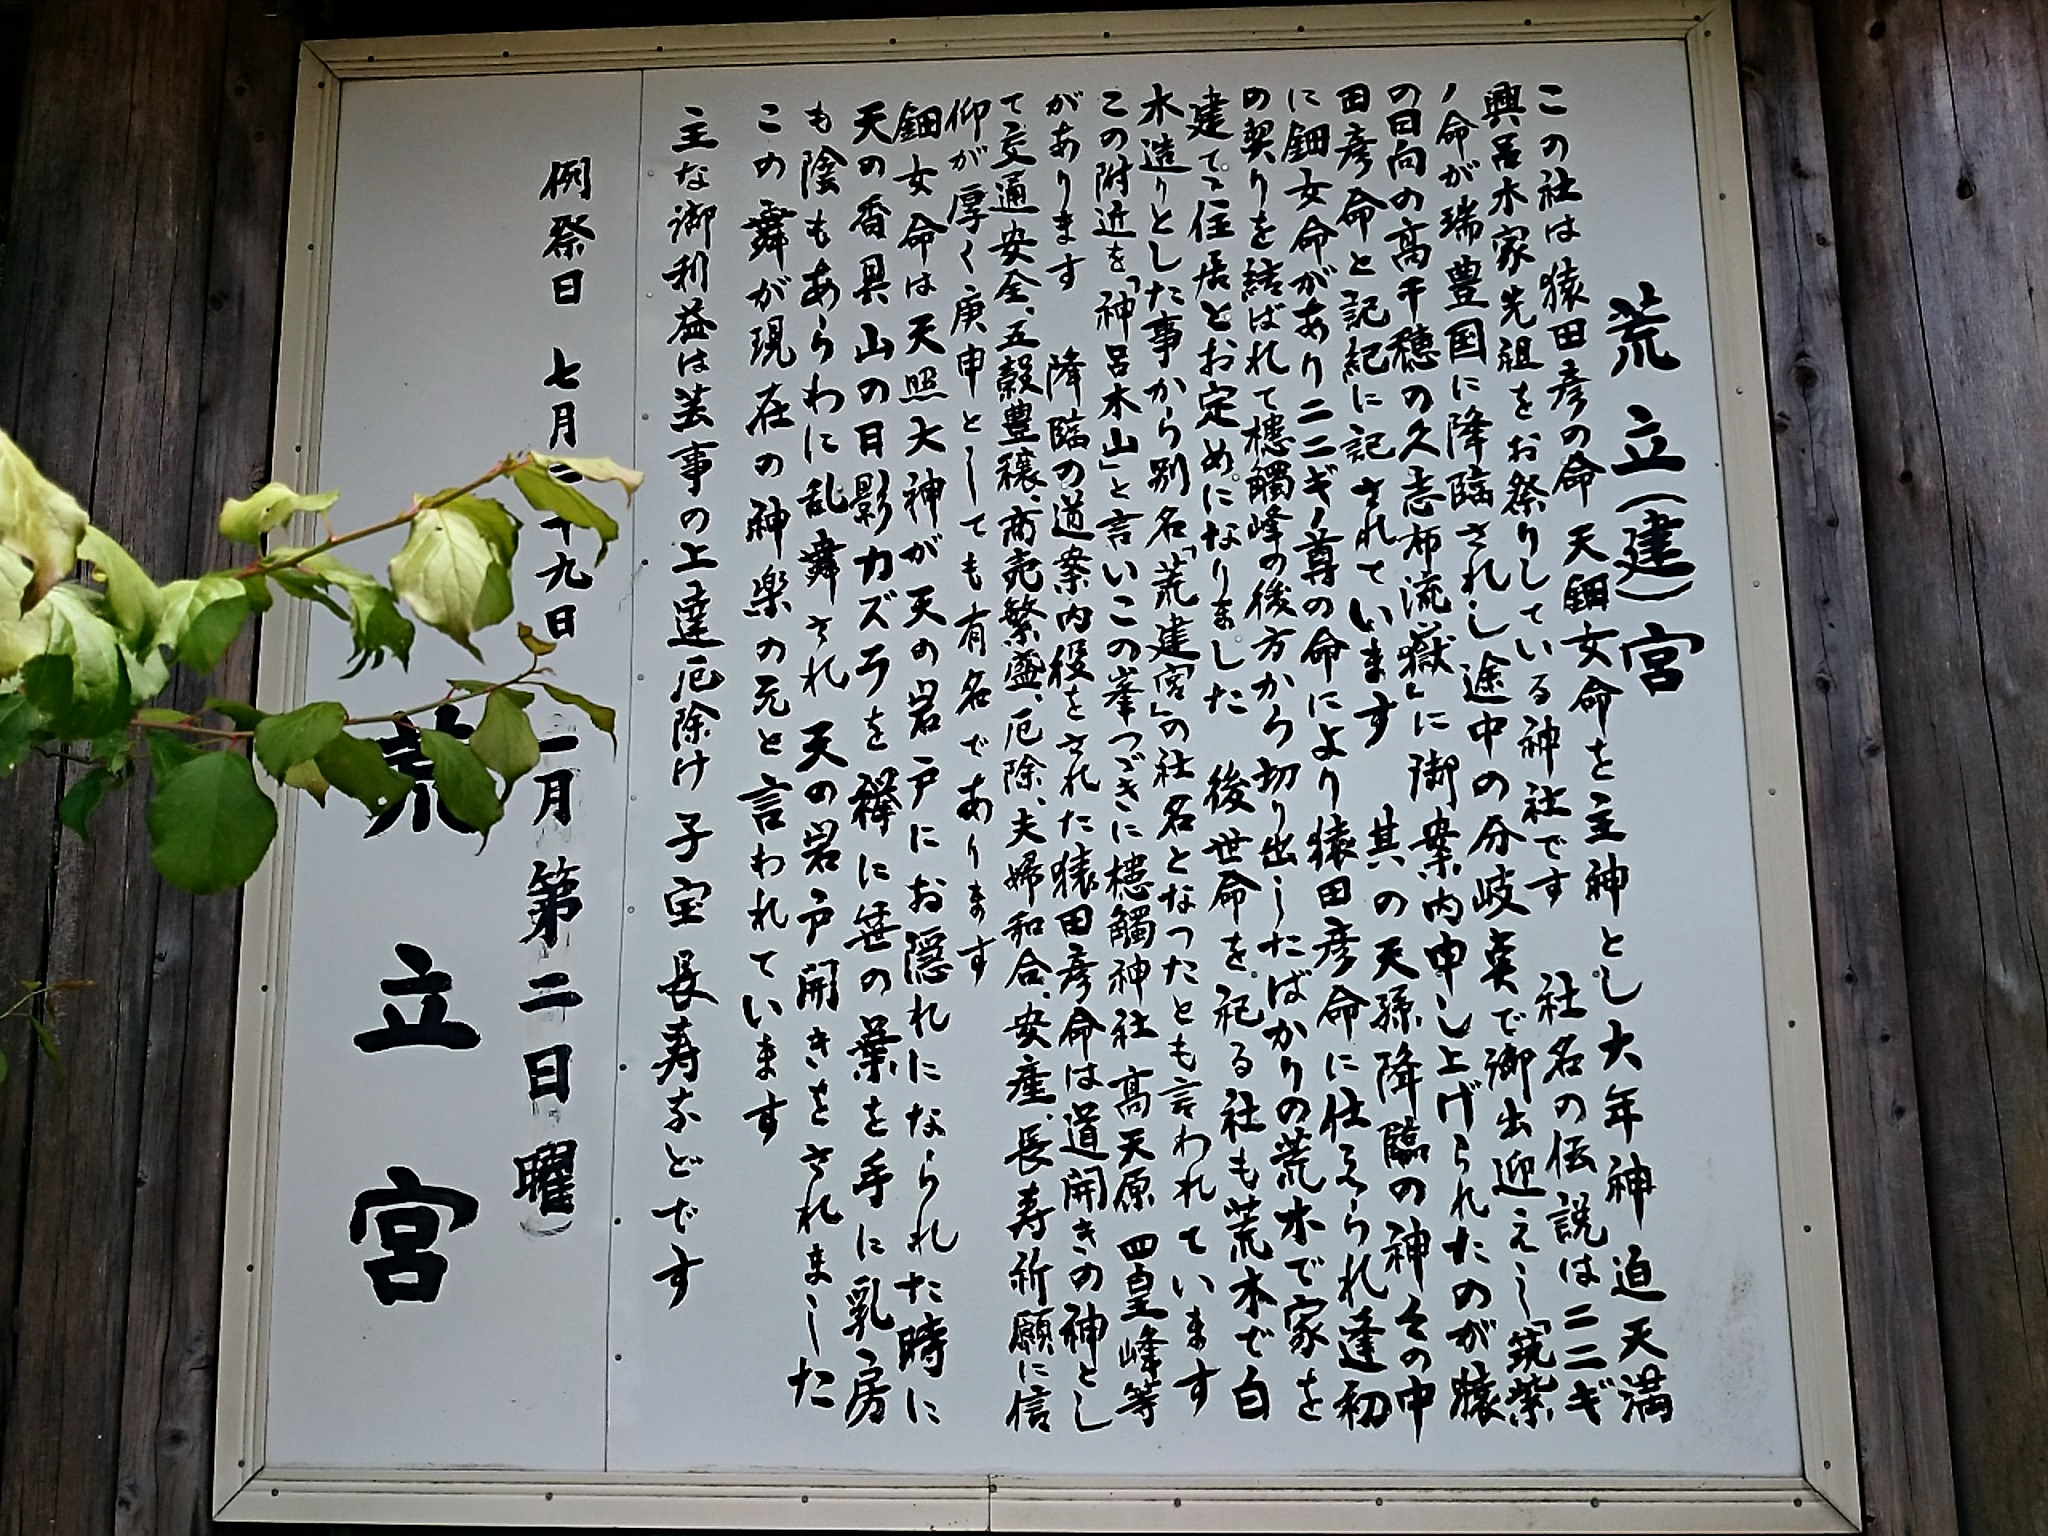 荒立(建)宮
この社は猿田彦の命 天鈿女命を主神とし大年神 迫天満
興呂木家先祖をお祭りしている神社です 社名の伝説はニニギ
ノ命が瑞豊国に降臨されし途中の分岐点で御出迎えし「筑紫
の日向の高千穂の久志布流嶽」に御案内申し上げられたのが猿
田彦命と記紀に記されています 其の天孫降臨の神その中
に鈿女命がありニニギノ尊の命により猿田彦命に仕えられ逢初
の契りを結ばれて槵觸峰の後方から切り出したばかりの荒木で家を
建てて住居とお定めになりました 後世命を祀る社も荒木で白
木造りとした事から別名「荒建宮」の社名となったとも言われています
この附近を「神呂木山」と言いこの峯つづきに槵觸神社 高天原 四皇峰等
があります 降臨の道案内役をされた猿田彦命は道開きの神とし
て交通安全、五穀豊穣、商売繁盛、厄除、夫婦和合、安産、長寿祈願に信
仰が厚く庚申としても有名であります
鈿女命は天照大神が天の岩戸にお隠れになられた時に
天の香具山の日影カズラを襷に笹の葉を手に乳房
も陰もあらわに乱舞され 天の岩戸開きをされました
この舞が現在の神楽の元と言われています
主な御利益は芸事の上達厄除け 子宝 長寿などです
例祭日 七月二十九日 一月 第二日曜)
荒立宮